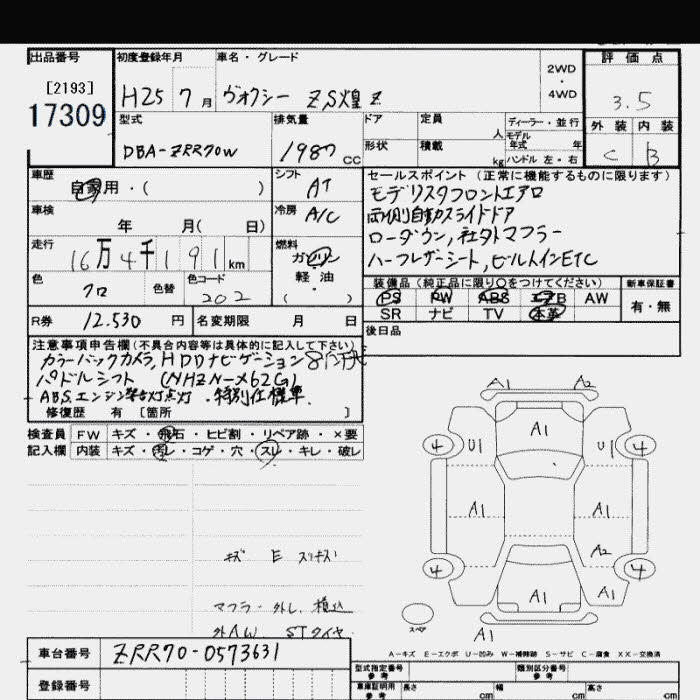 出品番号
[2193]
17309
初度登録年月
H25 7月
車名・グレード
ヴォクシー ZS煌Z
2WD
・
4WD
評価点
3.5
型式
DBA-ZRR70W
排気量
1987 CC
ドア
形状
定員
人
積載
kg
ディーラー・並行
モデル年式 年
ハンドル 左・右
外装 内装
C B
車歴
自家用・( )
シフト
AT
車検
年 月( 日)
冷房
A/C
走行
16万4千191km
燃料
ガソリン
軽・油
( )
色
クロ
色替
色コード
202
R券 12.530 円
名変期限 月 日
セールスポイント (正常に機能するものに限ります)
モデリスタフロントエアロ
両側自動スライドドア
ローダウン, 社外マフラー
ハーフレザーシート, ビルトインETC
装備品(純正品に限り〇をつけてください)
新車保証書
PS PW ABS エアB AW
SR ナビ TV 本革
有・無
後日品
注意事項申告欄(不具合内容等は具体的に記入して下さい)
カラーバックカメラ, HDDナビゲーション
パドルシフト (NHZN-X62G)
ABS.エンジン警告灯点灯 .特別仕様車.
修復歴 有 [箇所 ]
検査員 FW キズ・飛石・ヒビ割・リペア跡・×要
記入欄 内装 キズ・汚レ・コゲ・穴・スレ・キレ・破レ
A1 A2
A1
4 U1 U1 4
A1 A1
A2
4 4
A1 A1
スペア
A1
キズ E スリキズ
マフラー外し 積込
外AW STタイヤ
A-キズ E-エクボ U-凹み W-補修跡 S-サビ C-腐食 XX-交換済
車台番号 ZRR70-0573631
登録番号
型式指定番号
参考
類別区分番号
参考
車庫証明用
参考
長さ cm
幅 cm
高さ cm